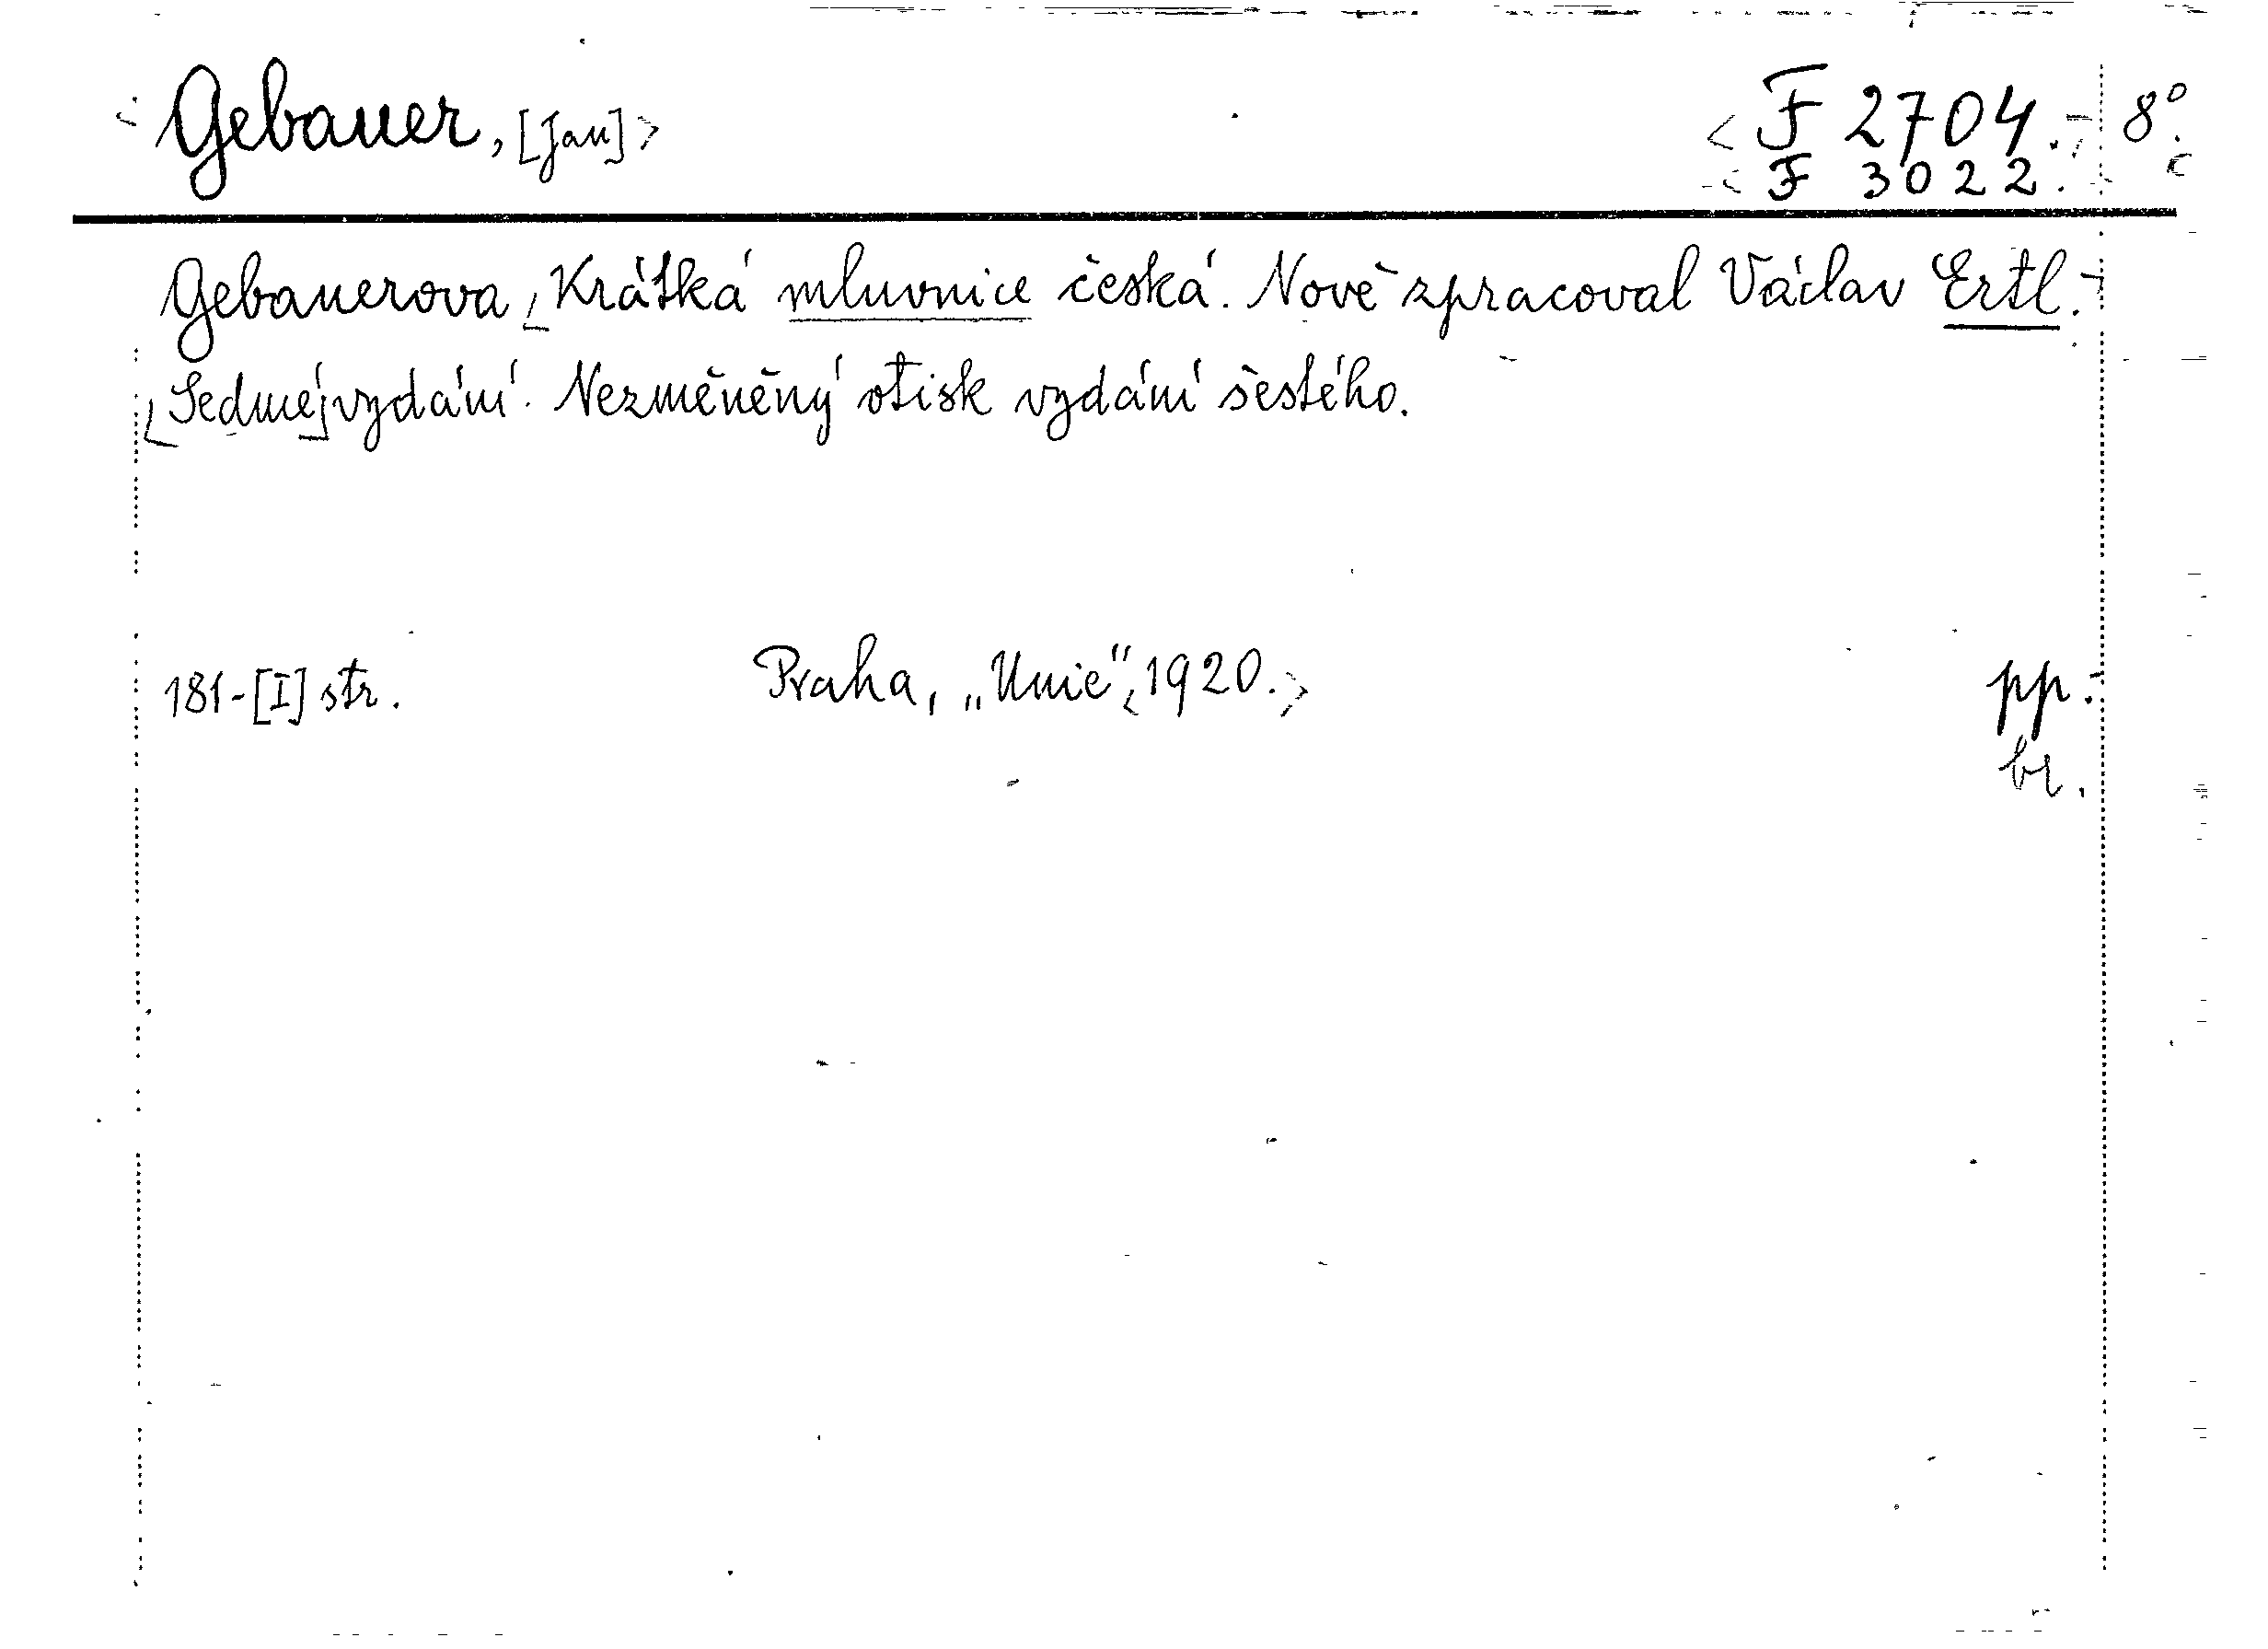 Gebauer, [Jan] F 2704. 8°.
F 3022.
Gebauerova Krátká mluvnice česká. Nově zpracoval Václav Ertl.
[Sedmé] vydání. Nezměněný otisk vydání šestého.
181-[I] str. Praha, „Unie", 1920. pp.
br.